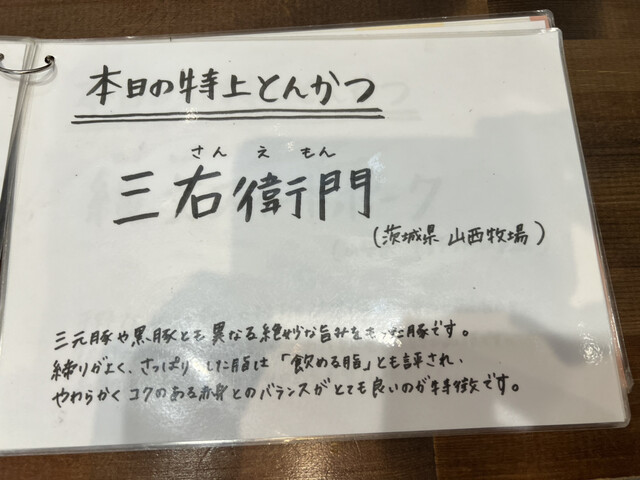 本日の特上とんかつ
さんえもん
三右衛門
(茨城県 山西牧場)
三元豚や黒豚とも異なる絶妙な旨みをもった豚です。
締りがよく、さっぱりした脂は「飲める脂」とも評され、
やわらかくコクのある赤身とのバランスがとても良いのが特徴です。